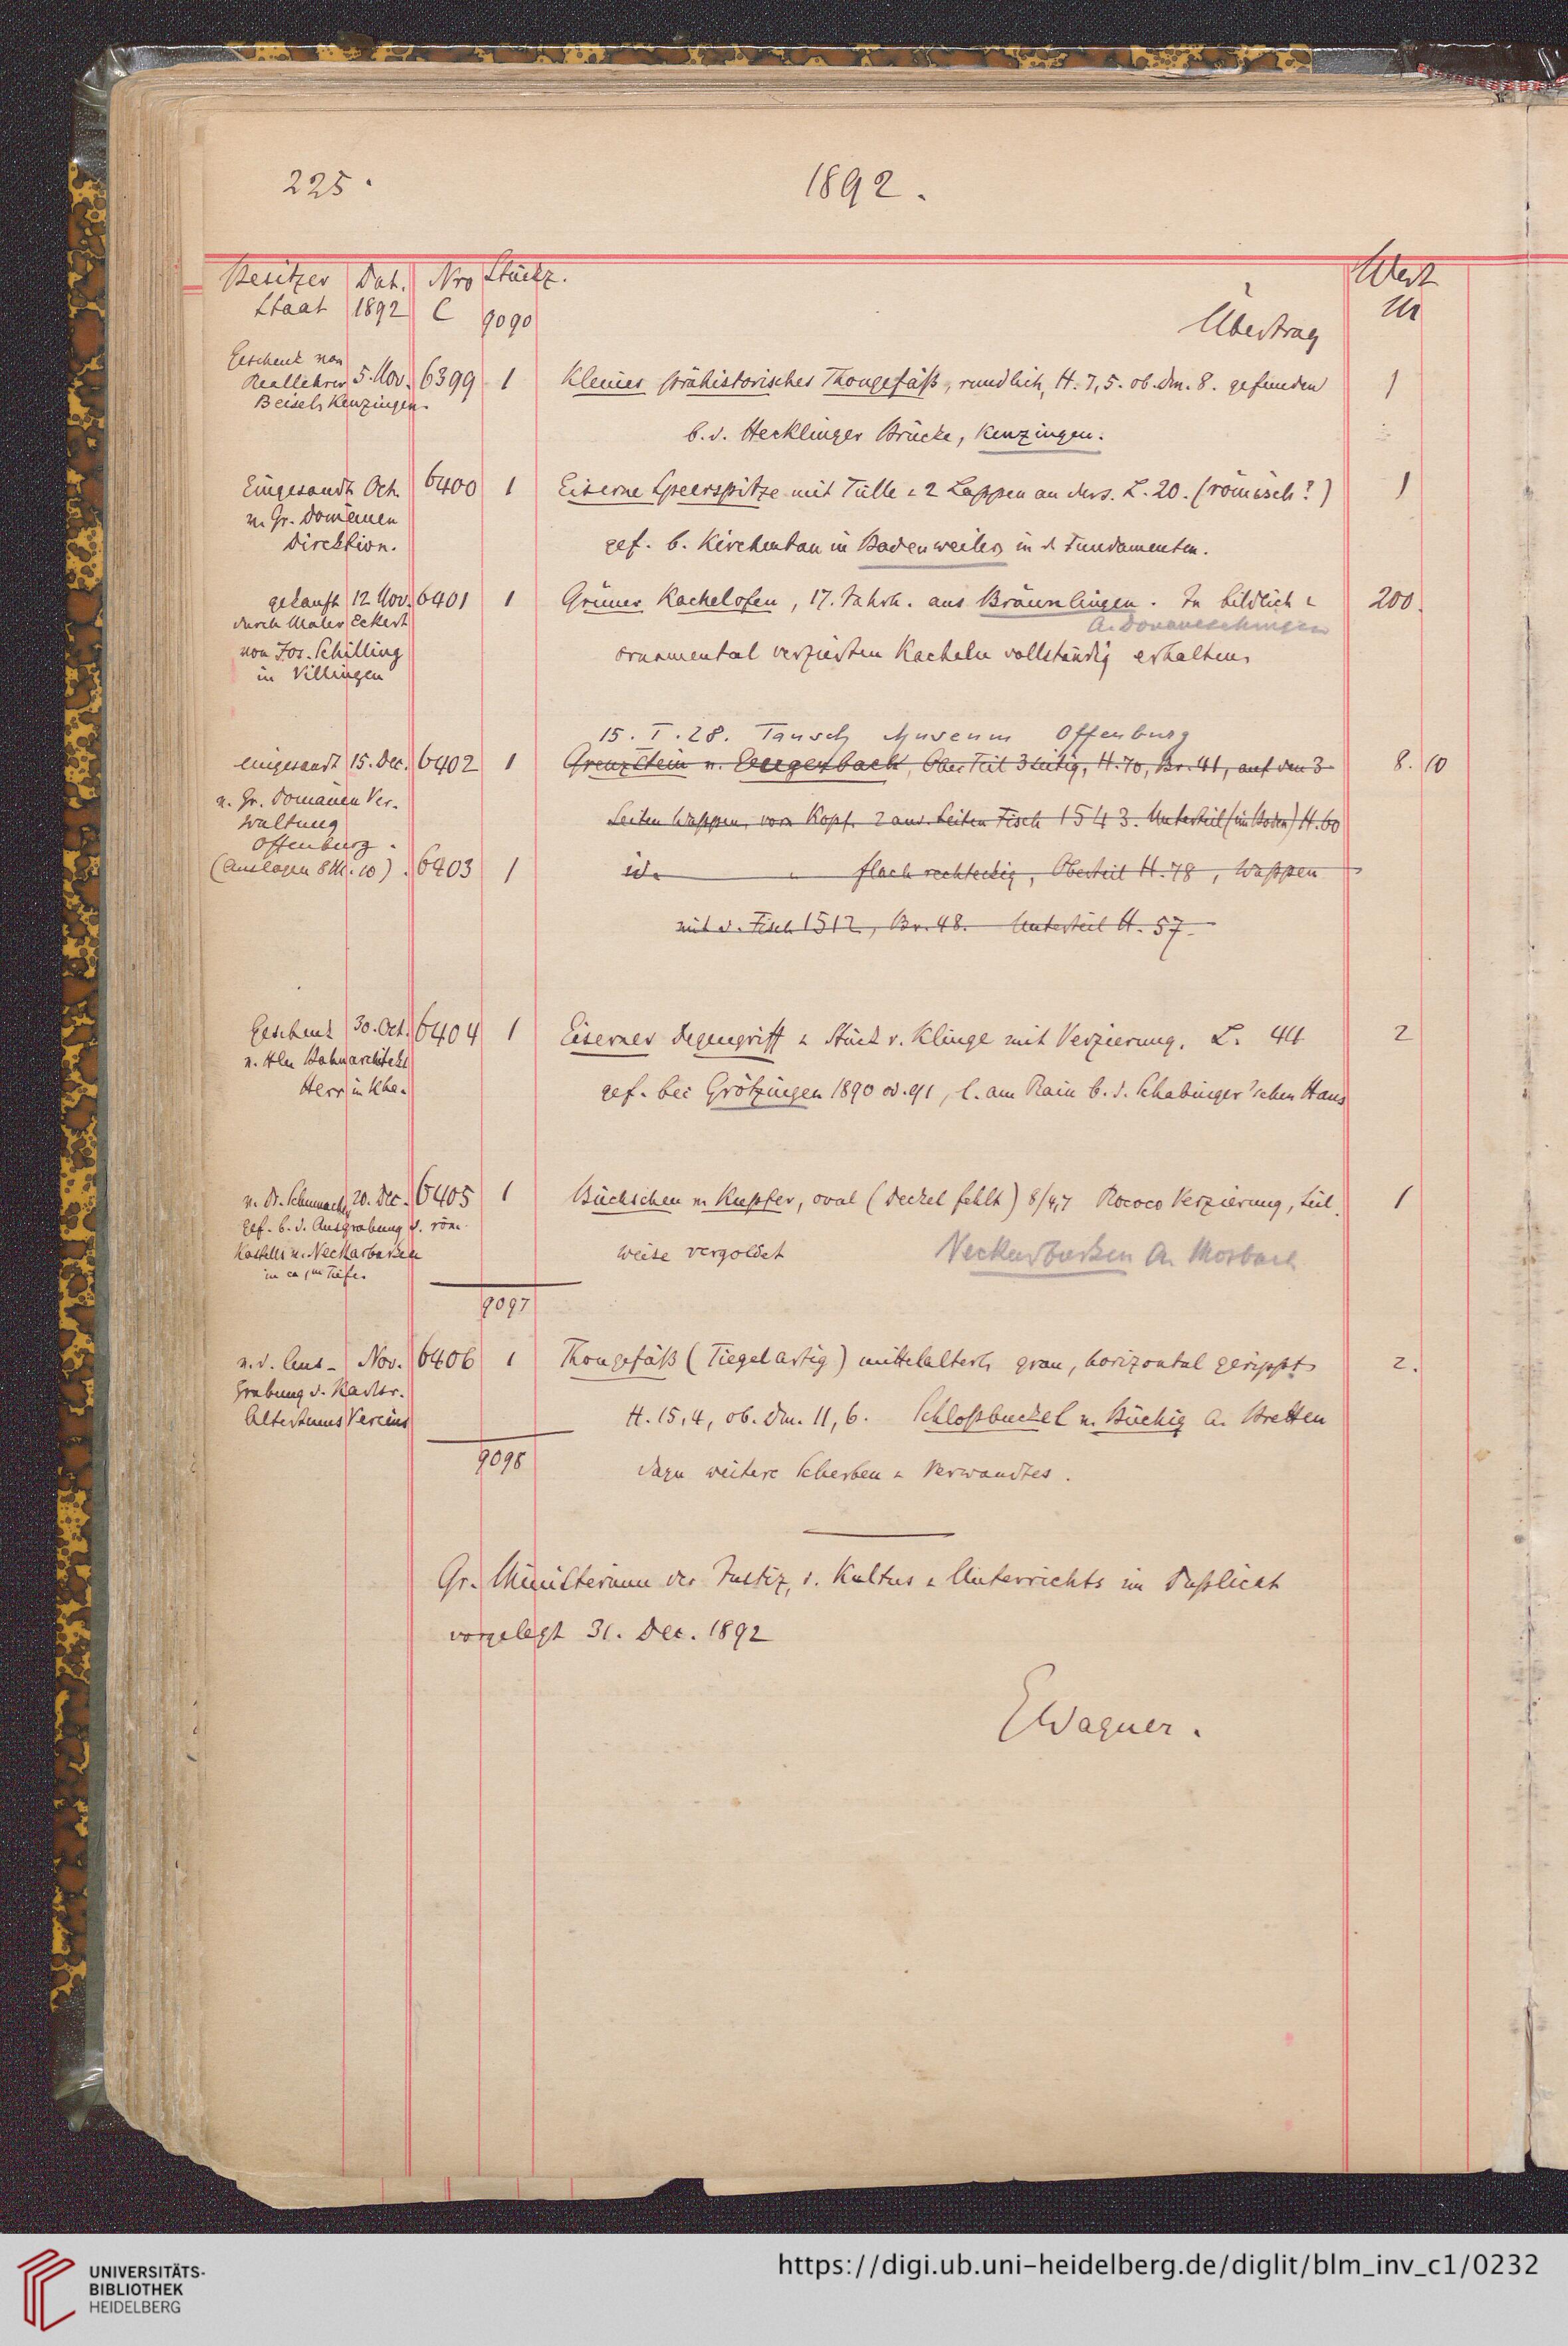 225.
1892.
Besitzer Dat. Nro Stückz. Wert
Staat 1892 C 9090 Übertrag M
Geschenk von
Reallehrer 5. Nov. 6399 1 Kleines prähistorisches Thongefäß, rundlich, H. 7,5. ob. Dm. 8. gefunden 1
Beisel, Kenzingen.
b. d. Hecklinger Brücke, Kenzingen.
Eingesandt Oct. 6400 1 Eiserne Speerspitze mit Tülle u 2 Lappen an ders. L. 20. (römisch?) 1
v. Gr. Domänen
Direktion.
gef. b. Kirchenbau in Badenweiler in d Fundamenten.
gekauft 12 Nov. 6401 1 Grüner Kachelofen, 17. Jahrh. aus Bräunlingen. In bildlich u 200.
durch Maler Eckert
A. Donaueschingen
von Jos. Schilling
in Villingen
ornamental verzierten Kacheln vollständig erhalten.
15. I. 28. Tausch Museum Offenburg
eingesandt 15. Dec. 6402 1 Grenzstein v. Gengenbach, Ober Teil 3seitig, H. 70, Br. 41, auf den 3 8. 10
v. Gr. Domänen Ver-
waltung
Offenburg.
Seiten Wappen, vorn Kopf. 2 and. Seiten Fisch 1543. Unterteil (im Boden) H. 60
(Auslagen 8 M. 10). 6403 1 id. flach rechteckig, Oberteil H. 78, Wappen
mit d. Fisch 1512, Br. 48. Unterteil H. 57.
Geschenk 30. Oct. 6404 1 Eiserner Degengriff u Stück v. Klinge mit Verzierung. L. 44 2
v. Hln Bahnarchitekt
Herr in Khe.
gef. bei Grötzingen 1890 od. 91, l. am Rain b. d. Schabinger'schen Haus
v. Dr. Schumacher 20. Dec. 6405 1 Büchschen v. Kupfer, oval (Deckel fehlt) 8/4,7 Rococo Verzierung, teil- 1
gef. b. d. Ausgrabung d. röm.
Kastells v. Neckarburken
in ca 1m Tiefe.
weise vergoldet Neckarburken A. Mosbach
9097
v. d. Aus- Nov. 6406 1 Thongefäß (Tiegelartig) mittelalterl. grau, horizontal gerippt 2.
Grabung d. Karlsr.
Altertums Vereins
H. 15,4, ob. Dm. 11,6. Schloßbuckel v. Büchig A. Bretten
9098
dazu weitere Scherben u Verwandtes.
Gr. Ministerium der Justiz, d. Kultus u Unterrichts im Duplicat
vorgelegt 31. Dec. 1892
EWagner.
UNIVERSITÄTS-
BIBLIOTHEK
HEIDELBERG
https://digi.ub.uni-heidelberg.de/diglit/blm_inv_c1/0232